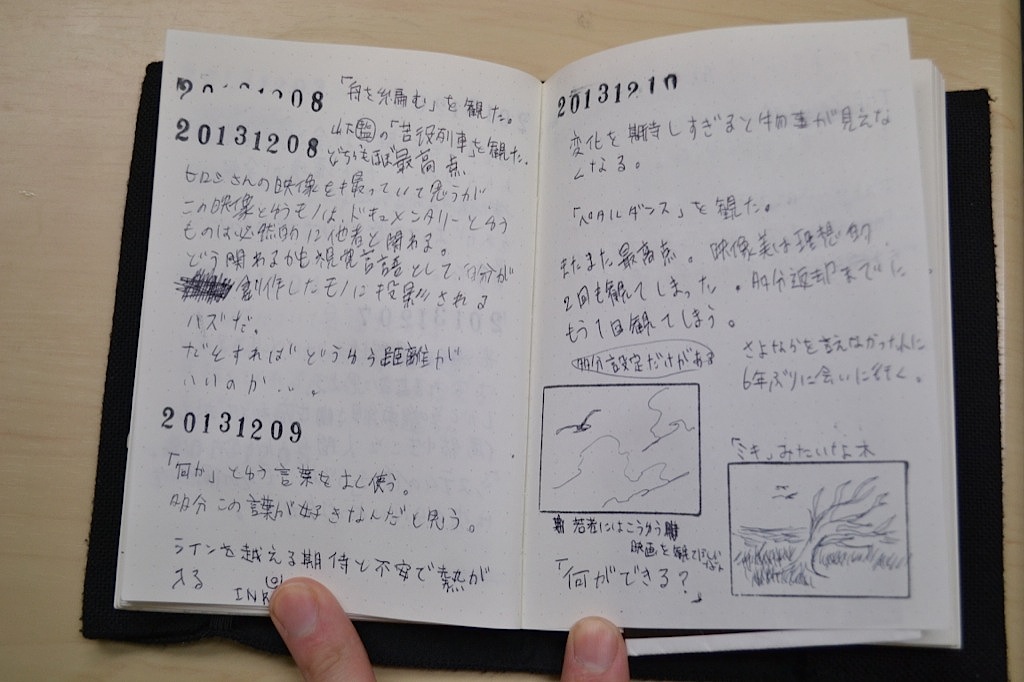 20131208
「舟を編む」を観た。
20131208
山下監の「苦役列車」を観た。
どちらもほぼ最高点
ヒロシさんの映像を撮っていて思うが
この映像とゆうモノは、ドキュメンタリーとゆう
ものは必然的に他者と関わる。
どう関わるかも視覚言語として、自分が
創作したモノに投影される
ハズだ。
だとすればどうゆう距離が
いいのか...。
20131209
「何か」とゆう言葉をよし使う。
多分この言葉が好きなんだと思う。
ラインを越える期待と不安で熱が
ある
20131210
変化を期待しすぎると物事が見えな
くなる。
「ペタルダンス」を観た。
またまた最高点。映像美は理想的
2回も観てしまった。多分返却までに
もう1回観てしまう。
多分設定だけがある
さよならを言えなかった人に
6年ぶりに会いに行く。
「ミキ」みたいな木
若者にはこうゆう
映画を観てほしい
「何ができる？」